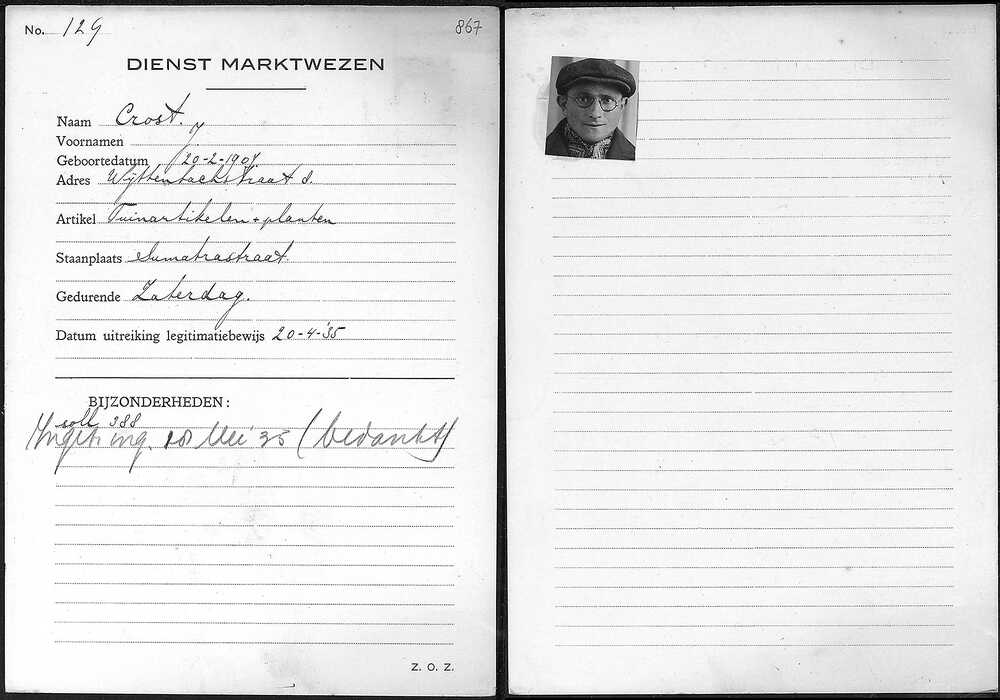 No. 129
867
DIENST MARKTWEZEN
Naam Crost.
Voornamen J
Geboortedatum 20-2-1907
Adres Wijttenbachstraat 8.
Artikel Tuinartikelen + planten
Staanplaats Sumatrastraat
Gedurende Zaterdag.
Datum uitreiking legitimatiebewijs 20-4-'35
BIJZONDERHEDEN:
soll. 388
ing. 18 Mei '35 (bedankt)
Z. O. Z.